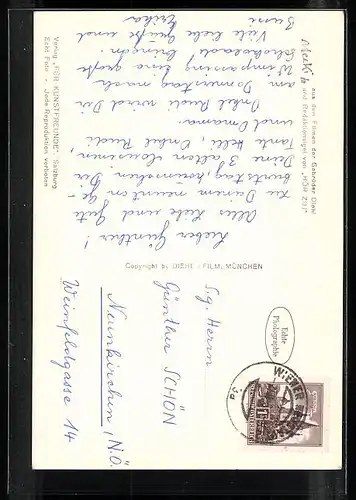 Mecki
aus den Filmen der Gebrüder Diehl
und Redaktionsigel von „HÖR ZU!"
Lieber Günther!
Alles Liebe und Gute
zu Deinem neunten Ge-
burtstag, wünschen Dir
Deine 3 alten
Tante Helli, Onkel Rudi
und Omama.
Onkel Rudi wird Dir
am Donnerstag nach
Wimpassing eine große
Schokolade bringen.
Viele liebe Grüße und
Bussi
Erika
Verlag „FÜR KUNSTFREUNDE", Salzburg
Zeht Foto - Jede Reproduktion verboten
Copyright by DIEHL-FILM, MÜNCHEN
Echte
Photographie
WIENER
Sg. Herrn
Günther SCHÖN
Neunkirchen, N.Ö.
Weinfeldgasse 14